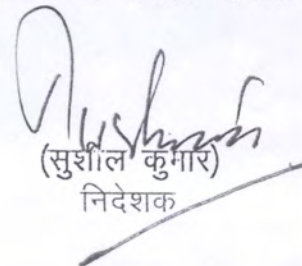 (सुशील कुमार)
निदेशक